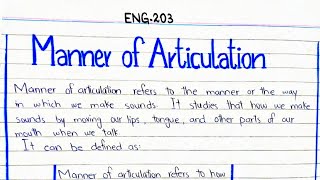 ENG-203
Manner of Articulation
Manner of articulation refers to the manner or the way
in which we make sounds. It studies that how we make
sounds by moving our lips, tongue, and other parts of our
mouth when we talk.
It can be defined as:
Manner of articulation refers to how